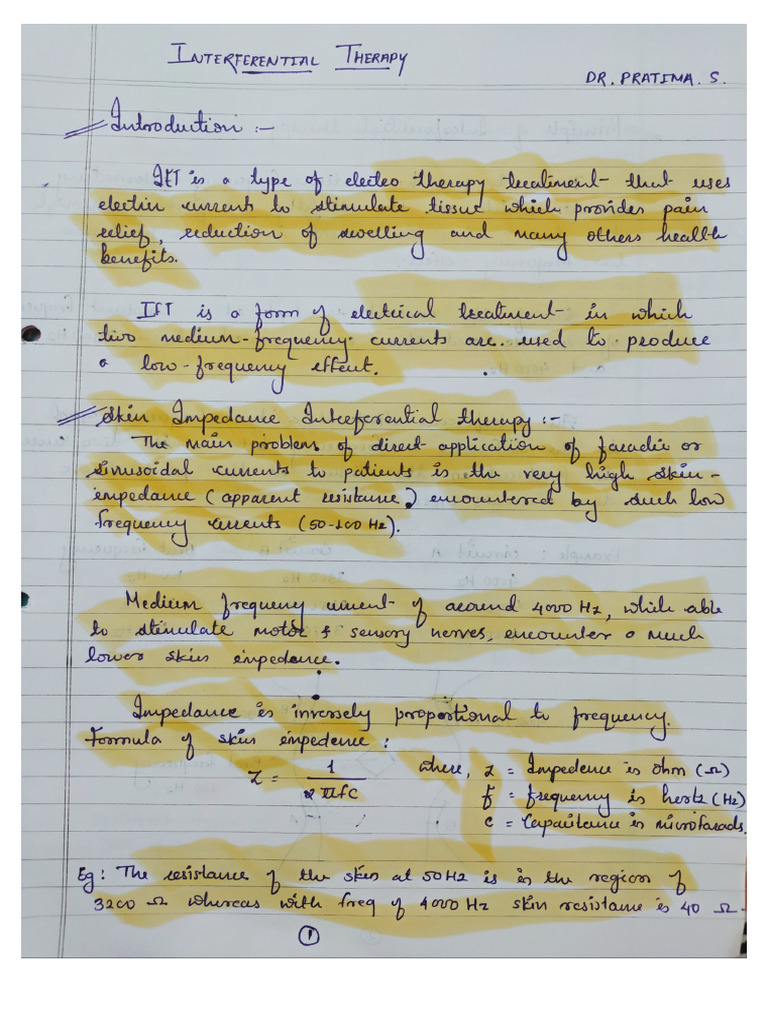 INTERFERENTIAL THERAPY
DR. PRATIMA. S.
Introduction :-
IFT is a type of electro therapy treatment that uses
electric current to stimulate tissue which provides pain
relief, reduction of swelling and many others health
benefits.
IFT is a form of electrical treatment in which
two medium-frequency currents are used to produce
a low-frequency effect.
Skin Impedance Interferential therapy :-
The main problem of direct application of faradic or
sinusoidal currents to patients is the very high skin-
impedance (apparent resistance) encountered by such low
frequency currents (50-100 Hz).
Medium frequency current of around 4000 Hz, which able
to stimulate motor & sensory nerves, encounter a much
lower skin impedance.
Impedance is inversely proportional to frequency.
Formula of skin impedence :
Z = 1 / 2πfc where, Z = Impedence is ohm (Ω)
f = frequency is hertz (Hz)
c = Capacitance is microfarads.
Eg : The resistance of the skin at 50Hz is in the region of
3200 Ω whereas with freq of 4000 Hz skin resistance is 40 Ω.
1